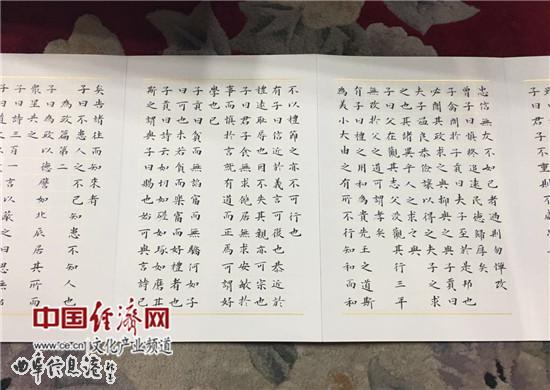 子曰君子不重則不
忠信無友不如己者過則勿憚改
曾子曰慎終追遠民德歸厚矣
子禽問於子貢曰夫子至於是邦也
必聞其政求之與抑與之與子貢曰
夫子溫良恭儉讓以得之夫子之求
之也其諸異乎人之求之與
子曰父在觀其志父沒觀其行三年
無改於父之道可謂孝矣
有子曰禮之用和為貴先王之道斯
為美小大由之有所不行知和而和
不以禮節之亦不可行也
有子曰信近於義言可復也恭近於
禮遠恥辱也因不失其親亦可宗也
子曰君子食無求飽居無求安敏於
事而慎於言就有道而正焉可謂好
學也已
子貢曰貧而無諂富而無驕何如子
曰可也未若貧而樂富而好禮者也
子貢曰詩云如切如磋如琢如磨其
斯之謂與子曰賜也始可與言詩已
矣告諸往而知來者
子曰不患人之不己知患不知人也
為政篇第二
子曰為政以德譬如北辰居其所而
眾星共之
子曰詩三百一言以蔽之曰思無
中国经济网
www.ce.cn 文化产业频道